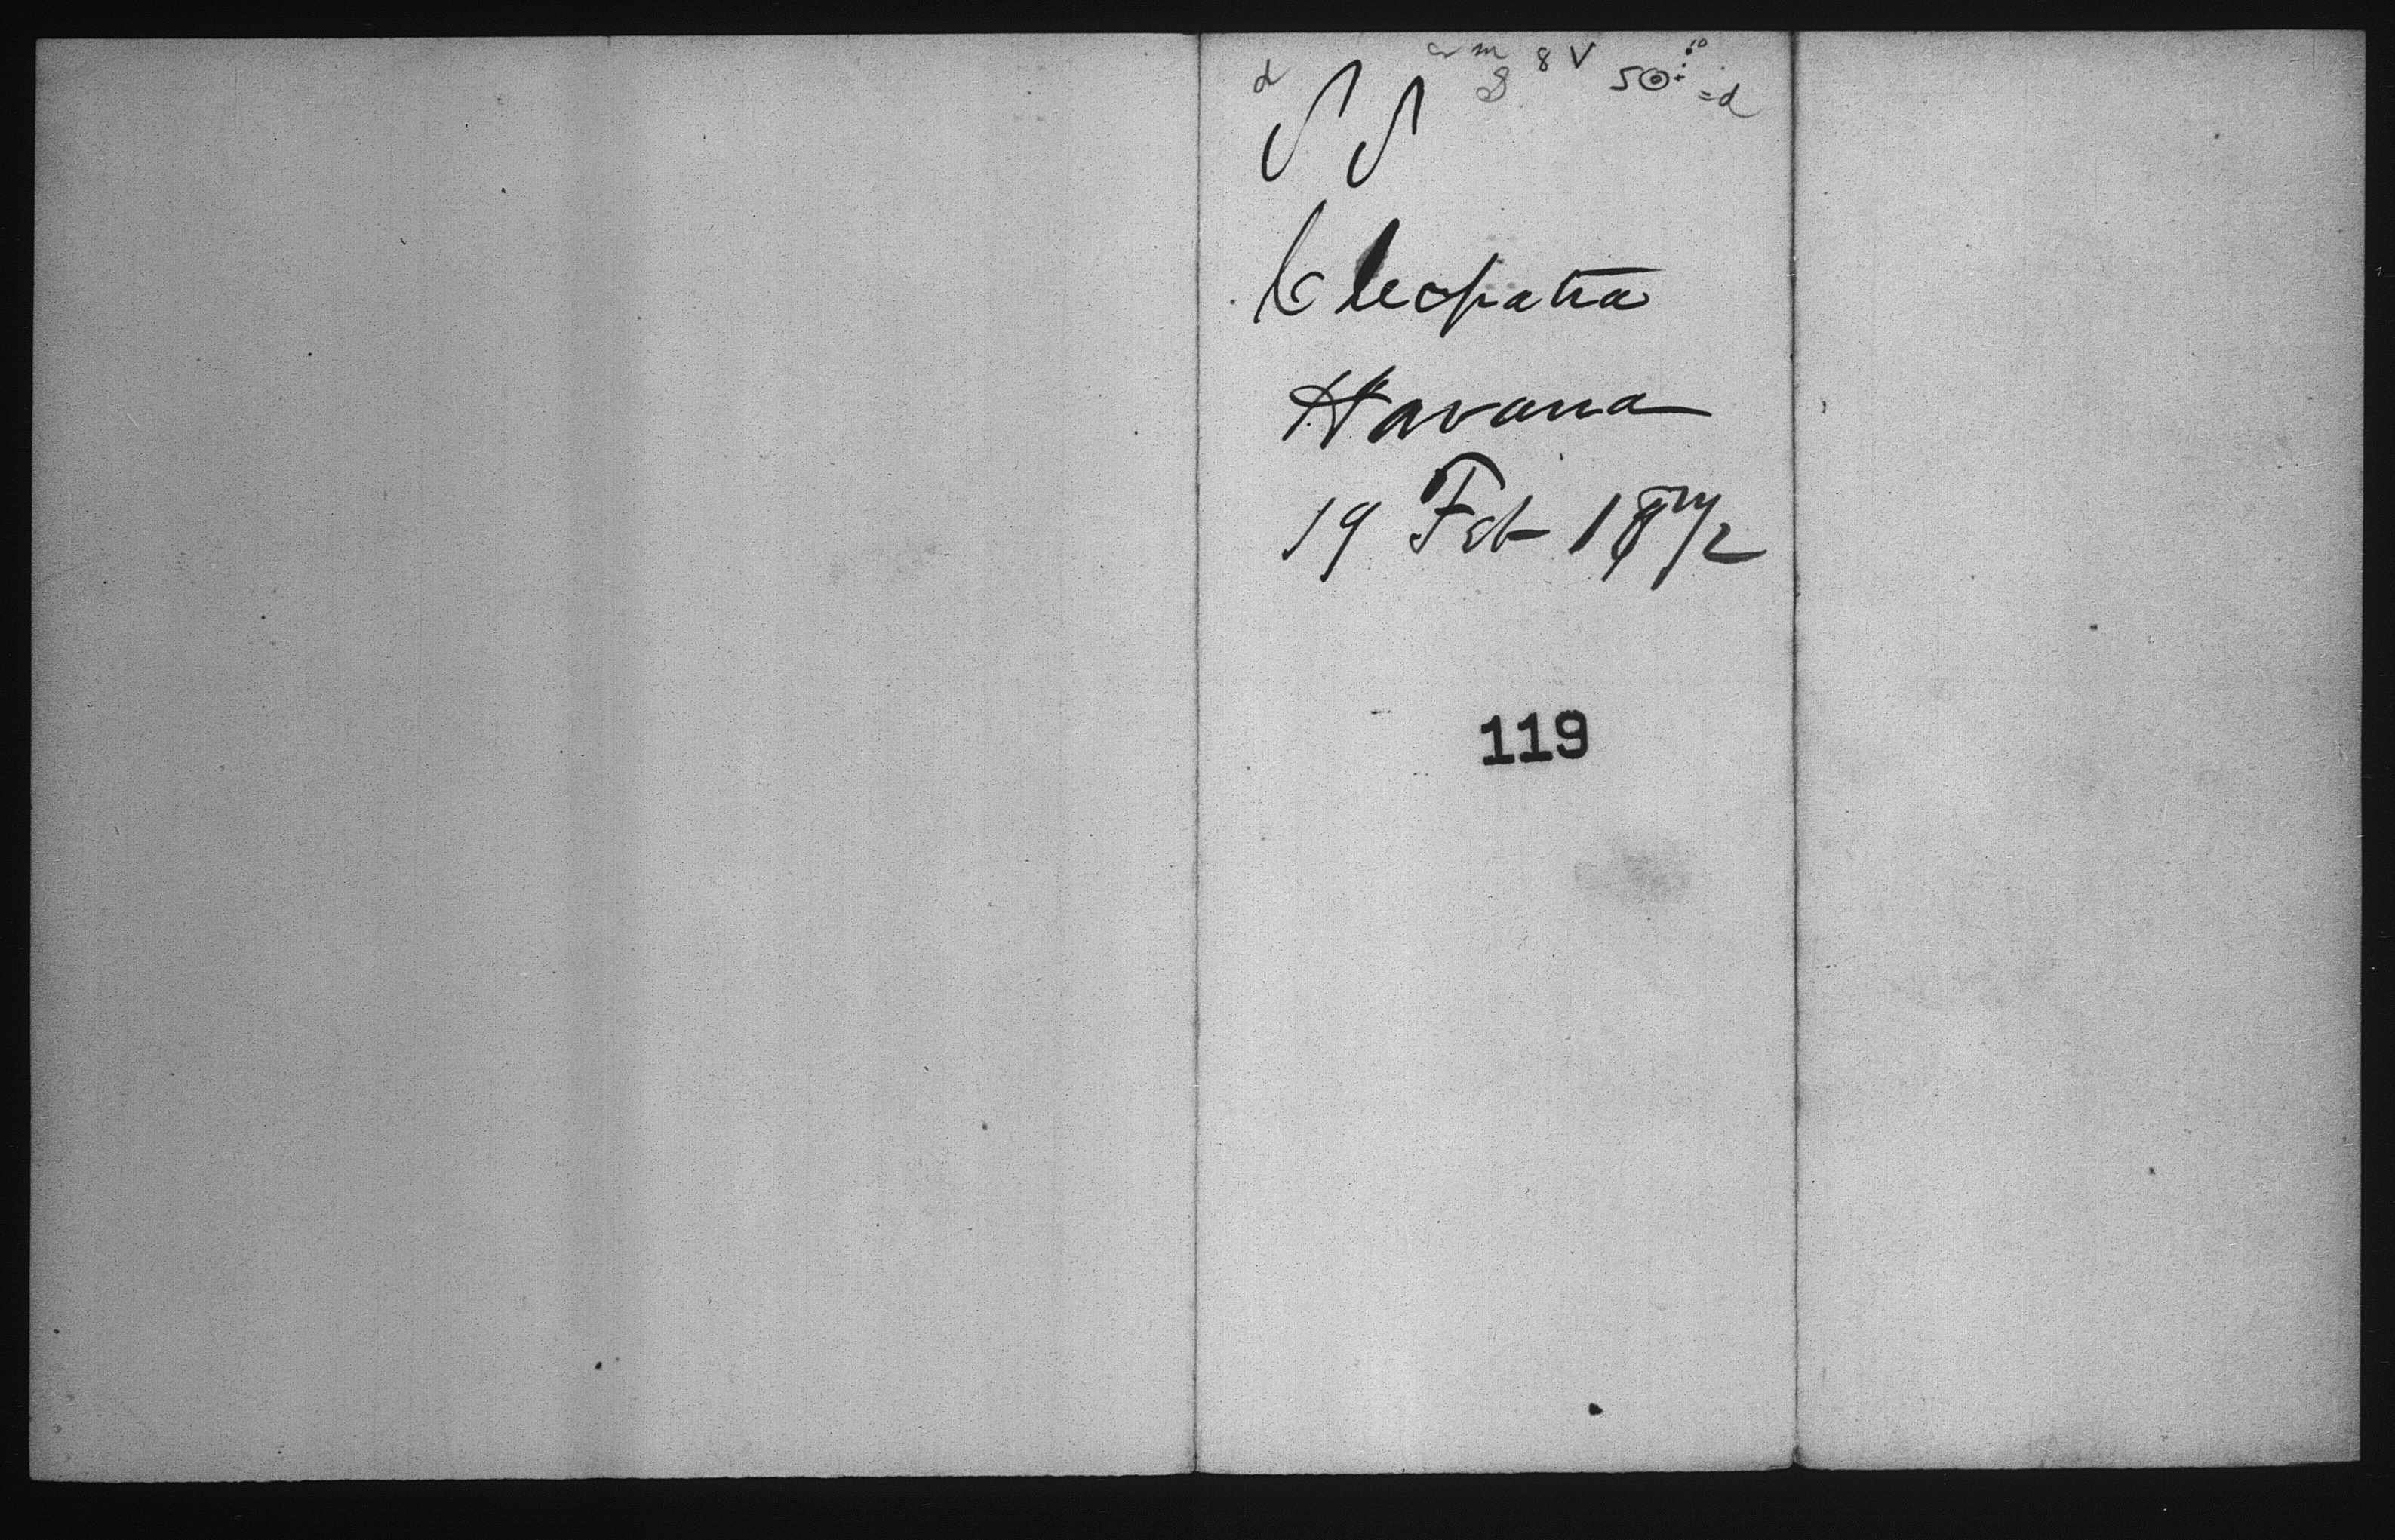 SS
Cleopatra
Havana
19 Feb 1872
119